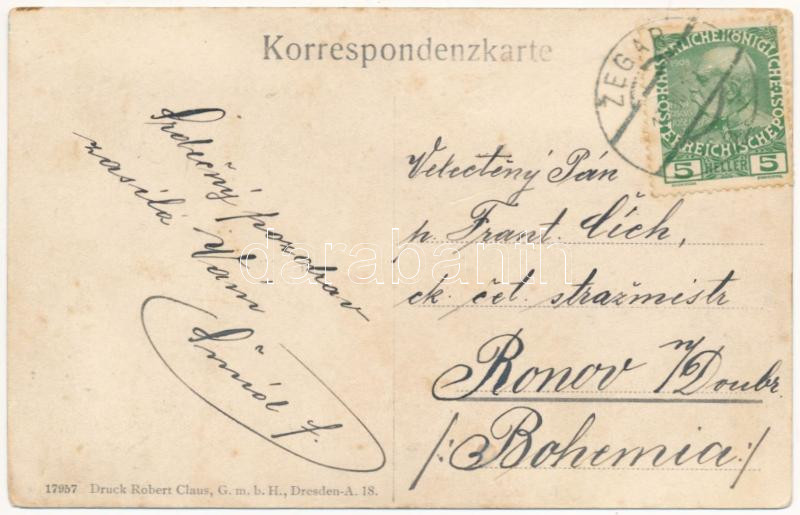 Korrespondenzkarte
ŻEGAR
KAISERLICHE KÖNIGLICHE
ÖSTERREICHISCHE POST
5 HELLER 5
Srdečný pozdrav
zasílá Vám
Šmíd F.
Velectěný Pán
p. Frant. Čích,
ck. čet. stražmistr
Ronov n/Doubr.
/: Bohemia :/
darabanth
17957 Druck Robert Claus, G. m. b. H., Dresden-A. 18.